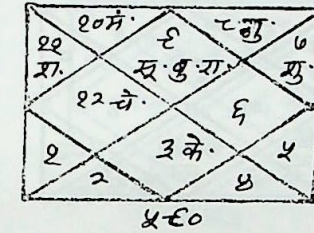 १० मं. ८ गु.
११ ९ ७
श. सू. बु. रा. शु.
१२ चं. ६
१ ३ के. ५
२ ४
५९०